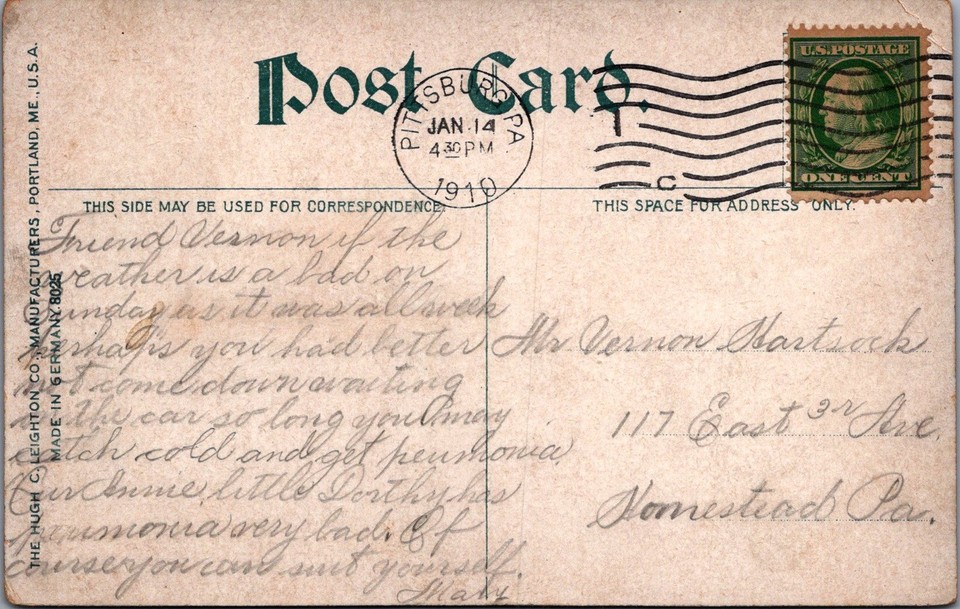 Post Card.
PITTSBURG, PA
JAN 14
4 30 PM
1910
C
U.S. POSTAGE
ONE CENT
THIS SIDE MAY BE USED FOR CORRESPONDENCE
THIS SPACE FOR ADDRESS ONLY.
THE HUGH C. LEIGHTON CO., MANUFACTURERS, PORTLAND, ME., U.S.A.
MADE IN GERMANY. 8025
Friend Vernon if the
weather is a bad on
Sunday as it was all week
perhaps you had better
not come down waiting
on the car so long you may
catch cold and get peumonia
Our Annie, little Dorthy has
peumonia very bad. Of
course you can suit yourself.
Mr Vernon Hartsock
117 East 3r Ave.
Homestead Pa.